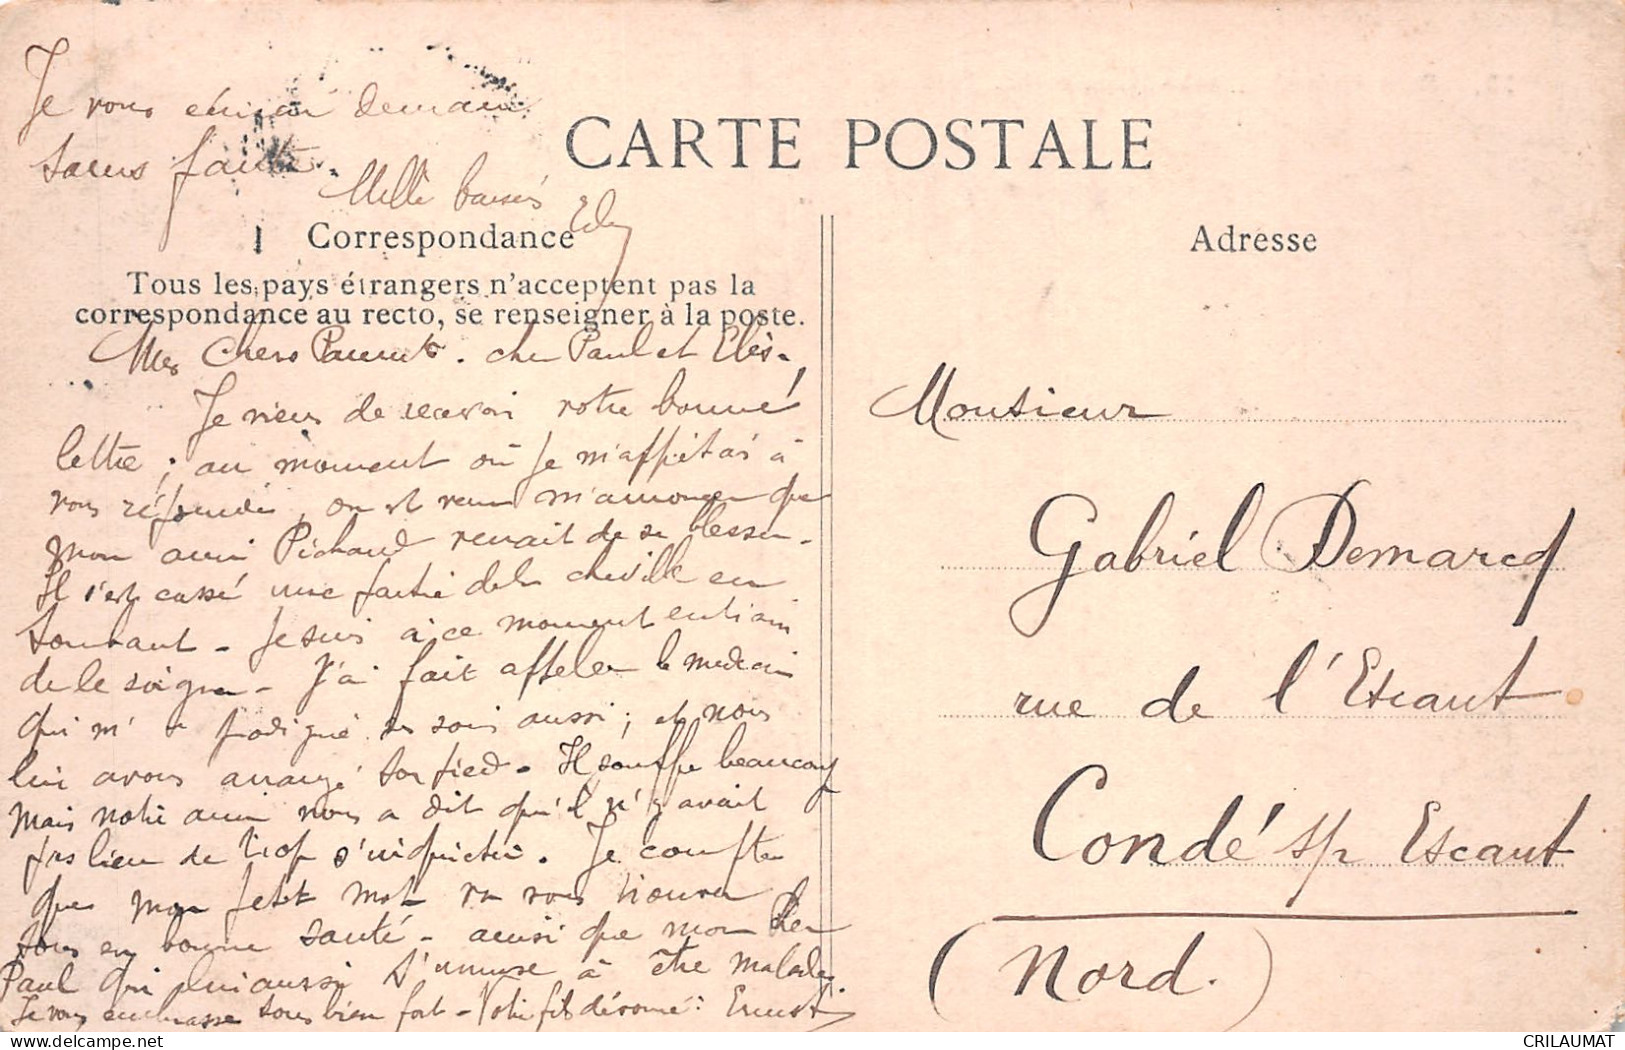 Je vous écrirai demain
sans faute.
Mille baisers
CARTE POSTALE
Correspondance
Adresse
Tous les pays étrangers n'acceptent pas la
correspondance au recto, se renseigner à la poste.
Mes Chers Parents. cher Paul et
Je viens de recevoir votre bonne
lettre ; au moment où je m'apprêtais à
vous répondre, on est venu m'annoncer que
mon ami Pichaud venait de se blesser.
Il s'est cassé une partie de la cheville en
sautant - Je suis à ce moment en train
de le soigner - J'ai fait appeler le médecin
qui m'a prodigué ses soins aussi ; et nous
lui avons arrangé son pied. Il souffre beaucoup
mais notre ami nous a dit qu'il n'y avait
pas lieu de trop s'inquiéter. Je compte
que mon petit mot va vous trouver
tous en bonne santé - ainsi que mon cher
Paul qui lui aussi s'amuse à être malade.
Je vous embrasse tous bien fort - Votre fils dévoué : Ernest
Monsieur
Gabriel Demarcq
rue de l'Escaut
Condé s/r Escaut
(Nord.)
CRILAUMAT